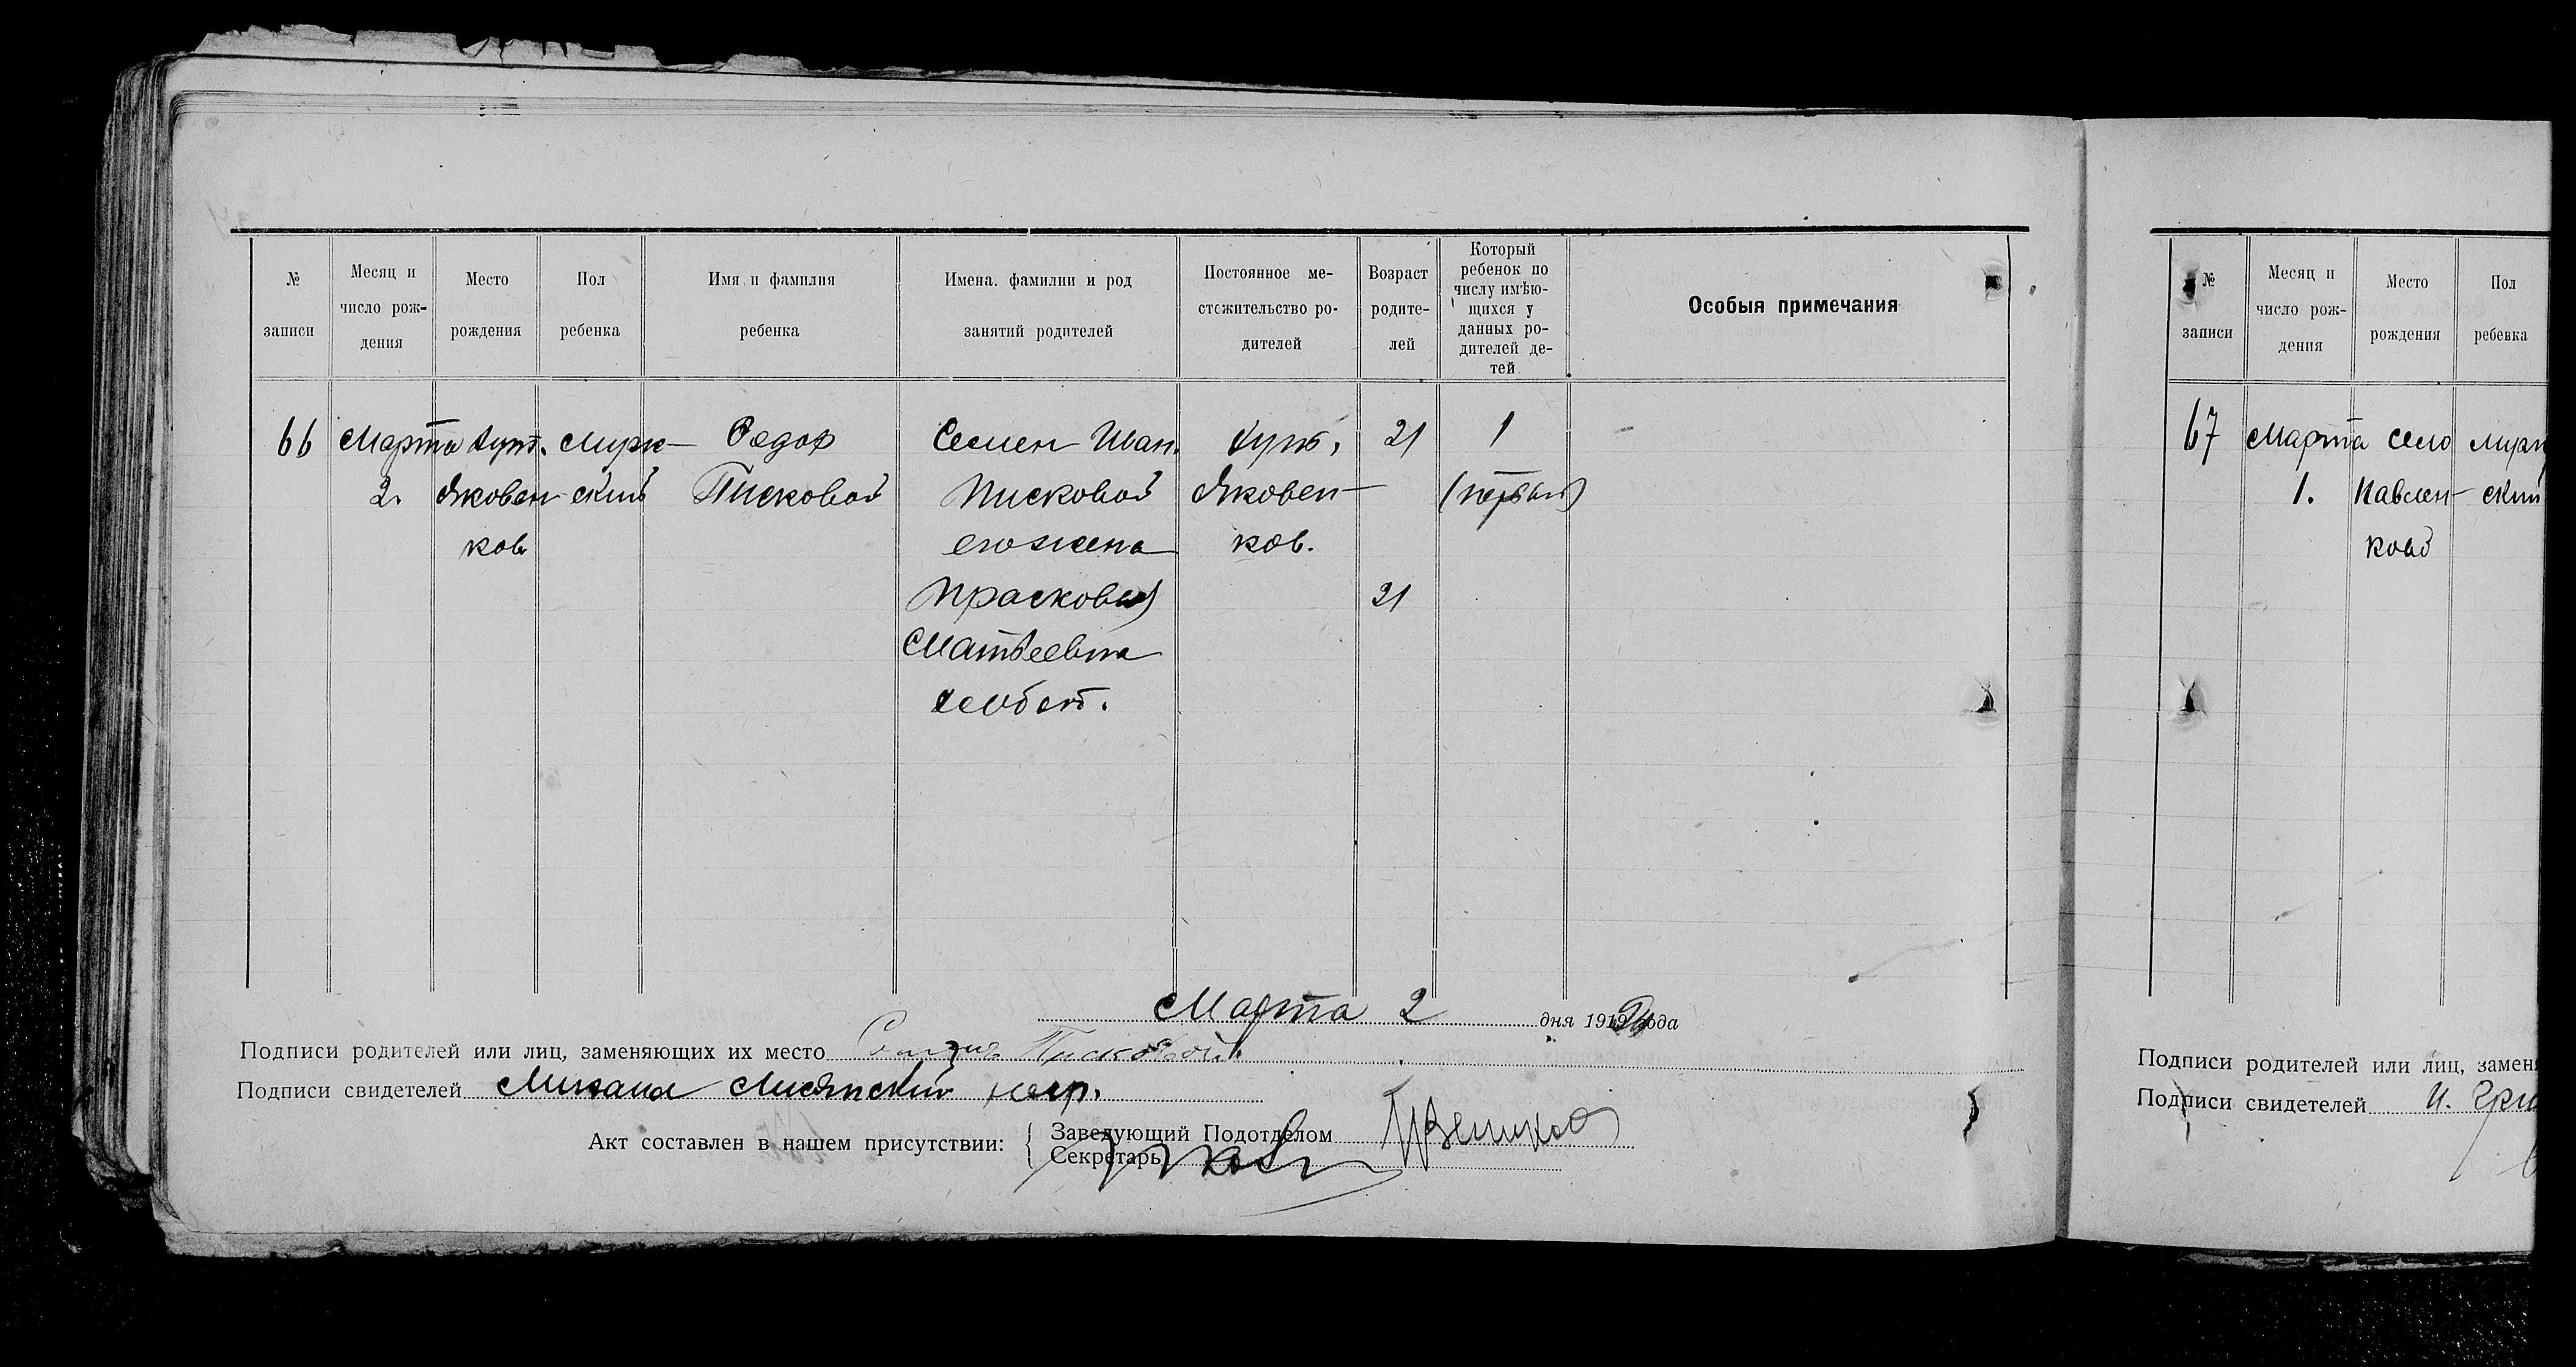 № записи
Месяц и число рождения
Место рождения
Пол ребенка
Имя и фамилия ребенка
Имена, фамилии и род занятий родителей
Постоянное местожительство родителей
Возраст родителей
Который ребенок по числу имѣющихся у данных родителей детей
Особыя примечания
66 Марта хут. Мужс- Федор Семен Иван. хут. 21 1
2. Яковен- ский Писковой Писковой Яковен- (первый)
ков его жена ков.
Прасковья 21
Матвеевна
хлебоп.
Марта 2 дня 19 года
Подписи родителей или лиц, заменяющих их место Писковой
Подписи свидетелей Михаил
Акт составлен в нашем присутствии:
Заведующий Подотделом
Секретарь
№ записи
Месяц и число рождения
Место рождения
Пол ребенка
67 Марта село
1. Павлен- ский
ков
Подписи родителей или лиц, замен
Подписи свидетелей И.